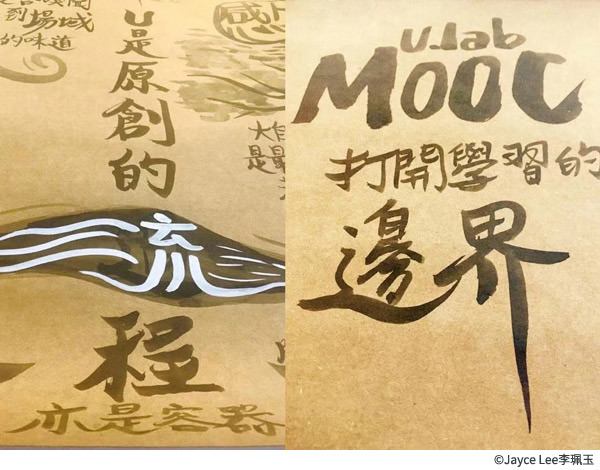 到場域
的味道
U是原創的
流
程
亦是容器
是最
u.lab
MOOC
打開學習的
邊界
©Jayce Lee李珮玉